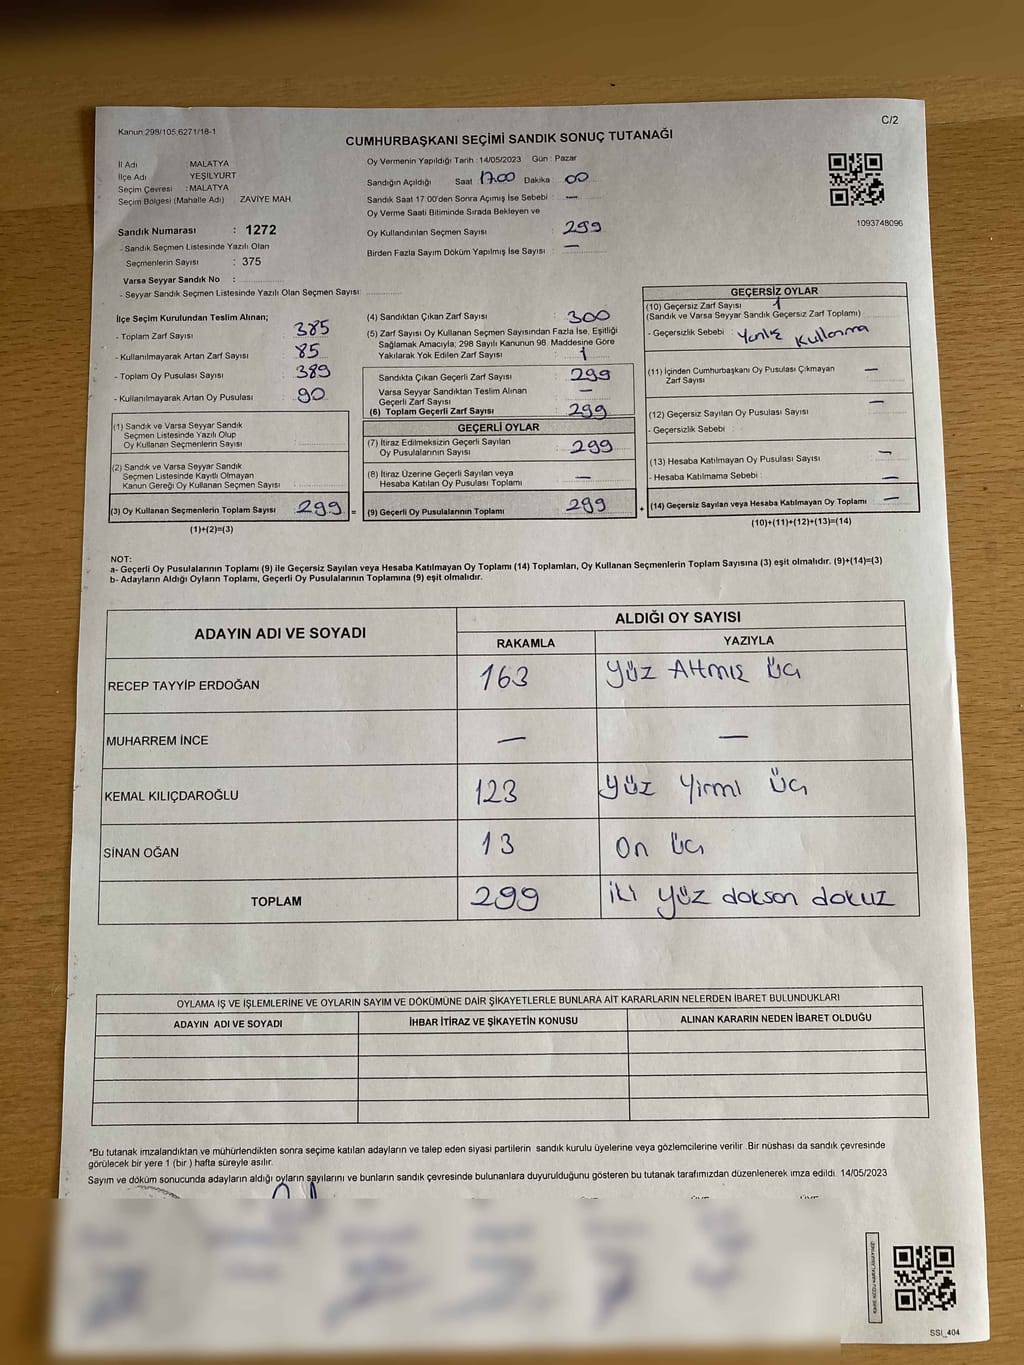 Kanun:298/105.6271/18-1
C/2
CUMHURBAŞKANI SEÇİMİ SANDIK SONUÇ TUTANAĞI
İl Adı : MALATYA
İlçe Adı : YEŞİLYURT
Seçim Çevresi : MALATYA
Seçim Bölgesi (Mahalle Adı) ZAVİYE MAH.
Sandık Numarası : 1272
- Sandık Seçmen Listesinde Yazılı Olan
Seçmenlerin Sayısı : 375
Varsa Seyyar Sandık No :
- Seyyar Sandık Seçmen Listesinde Yazılı Olan Seçmen Sayısı:
Oy Vermenin Yapıldığı Tarih : 14/05/2023 Gün : Pazar
Sandığın Açıldığı Saat 17.00 Dakika 00
Sandık Saat 17:00'den Sonra Açımış İse Sebebi : —
Oy Verme Saati Bitiminde Sırada Bekleyen ve
Oy Kullandırılan Seçmen Sayısı : 299
Birden Fazla Sayım Döküm Yapılmış İse Sayısı : —
1093748096
İlçe Seçim Kurulundan Teslim Alınan;
- Toplam Zarf Sayısı : 385
- Kullanılmayarak Artan Zarf Sayısı : 85
- Toplam Oy Pusulası Sayısı : 389
- Kullanılmayarak Artan Oy Pusulası : 90
(1) Sandık ve Varsa Seyyar Sandık
Seçmen Listesinde Yazılı Olup
Oy Kullanan Seçmenlerin Sayısı
(2) Sandık ve Varsa Seyyar Sandık
Seçmen Listesinde Kayıtlı Olmayan
Kanun Gereği Oy Kullanan Seçmen Sayısı
(3) Oy Kullanan Seçmenlerin Toplam Sayısı 299 =
(1)+(2)=(3)
(4) Sandıktan Çıkan Zarf Sayısı : 300
(5) Zarf Sayısı Oy Kullanan Seçmen Sayısından Fazla İse, Eşitliği
Sağlamak Amacıyla; 298 Sayılı Kanunun 98. Maddesine Göre
Yakılarak Yok Edilen Zarf Sayısı : 1
Sandıkta Çıkan Geçerli Zarf Sayısı : 299
Varsa Seyyar Sandıktan Teslim Alınan
Geçerli Zarf Sayısı —
(6) Toplam Geçerli Zarf Sayısı : 299
GEÇERLİ OYLAR
(7) İtiraz Edilmeksizin Geçerli Sayılan
Oy Pusulalarının Sayısı : 299
(8) İtiraz Üzerine Geçerli Sayılan veya
Hesaba Katılan Oy Pusulası Toplamı : —
(9) Geçerli Oy Pusulalarının Toplamı : 299 +
GEÇERSİZ OYLAR
(10) Geçersiz Zarf Sayısı : 1
(Sandık ve Varsa Seyyar Sandık Geçersiz Zarf Toplamı)
- Geçersizlik Sebebi : Yanlış Kullanma
(11) İçinden Cumhurbaşkanı Oy Pusulası Çıkmayan —
Zarf Sayısı
—
(12) Geçersiz Sayılan Oy Pusulası Sayısı :
- Geçersizlik Sebebi :
(13) Hesaba Katılmayan Oy Pusulası Sayısı : —
- Hesaba Katılmama Sebebi : —
(14) Geçersiz Sayılan veya Hesaba Katılmayan Oy Toplamı : —
(10)+(11)+(12)+(13)=(14)
NOT:
a- Geçerli Oy Pusulalarının Toplamı (9) ile Geçersiz Sayılan veya Hesaba Katılmayan Oy Toplamı (14) Toplamları, Oy Kullanan Seçmenlerin Toplam Sayısına (3) eşit olmalıdır. (9)+(14)=(3)
b- Adayların Aldığı Oyların Toplamı, Geçerli Oy Pusulalarının Toplamına (9) eşit olmalıdır.
ADAYIN ADI VE SOYADI
ALDIĞI OY SAYISI
RAKAMLA YAZIYLA
RECEP TAYYİP ERDOĞAN 163 Yüz Altmış Üç
MUHARREM İNCE — —
KEMAL KILIÇDAROĞLU 123 Yüz Yirmi Üç
SİNAN OĞAN 13 On Üç
TOPLAM 299 iki yüz doksan dokuz
OYLAMA İŞ VE İŞLEMLERİNE VE OYLARIN SAYIM VE DÖKÜMÜNE DAİR ŞİKAYETLERLE BUNLARA AİT KARARLARIN NELERDEN İBARET BULUNDUKLARI
ADAYIN ADI VE SOYADI İHBAR İTİRAZ VE ŞİKAYETİN KONUSU ALINAN KARARIN NEDEN İBARET OLDUĞU
*Bu tutanak imzalandıktan ve mühürlendikten sonra seçime katılan adayların ve talep eden siyasi partilerin sandık kurulu üyelerine veya gözlemcilerine verilir. Bir nüshası da sandık çevresinde
görülecek bir yere 1 (bir ) hafta süreyle asılır.
Sayım ve döküm sonucunda adayların aldığı oyların sayılarını ve bunların sandık çevresinde bulunanlara duyurulduğunu gösteren bu tutanak tarafımızdan düzenlenerek imza edildi. 14/05/2023
SSI_404